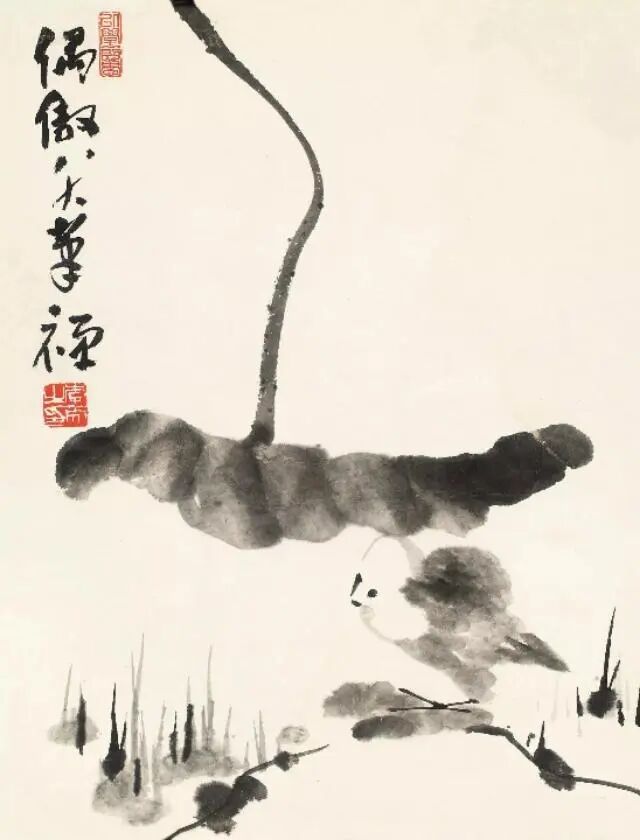 偶倣八大筆禪